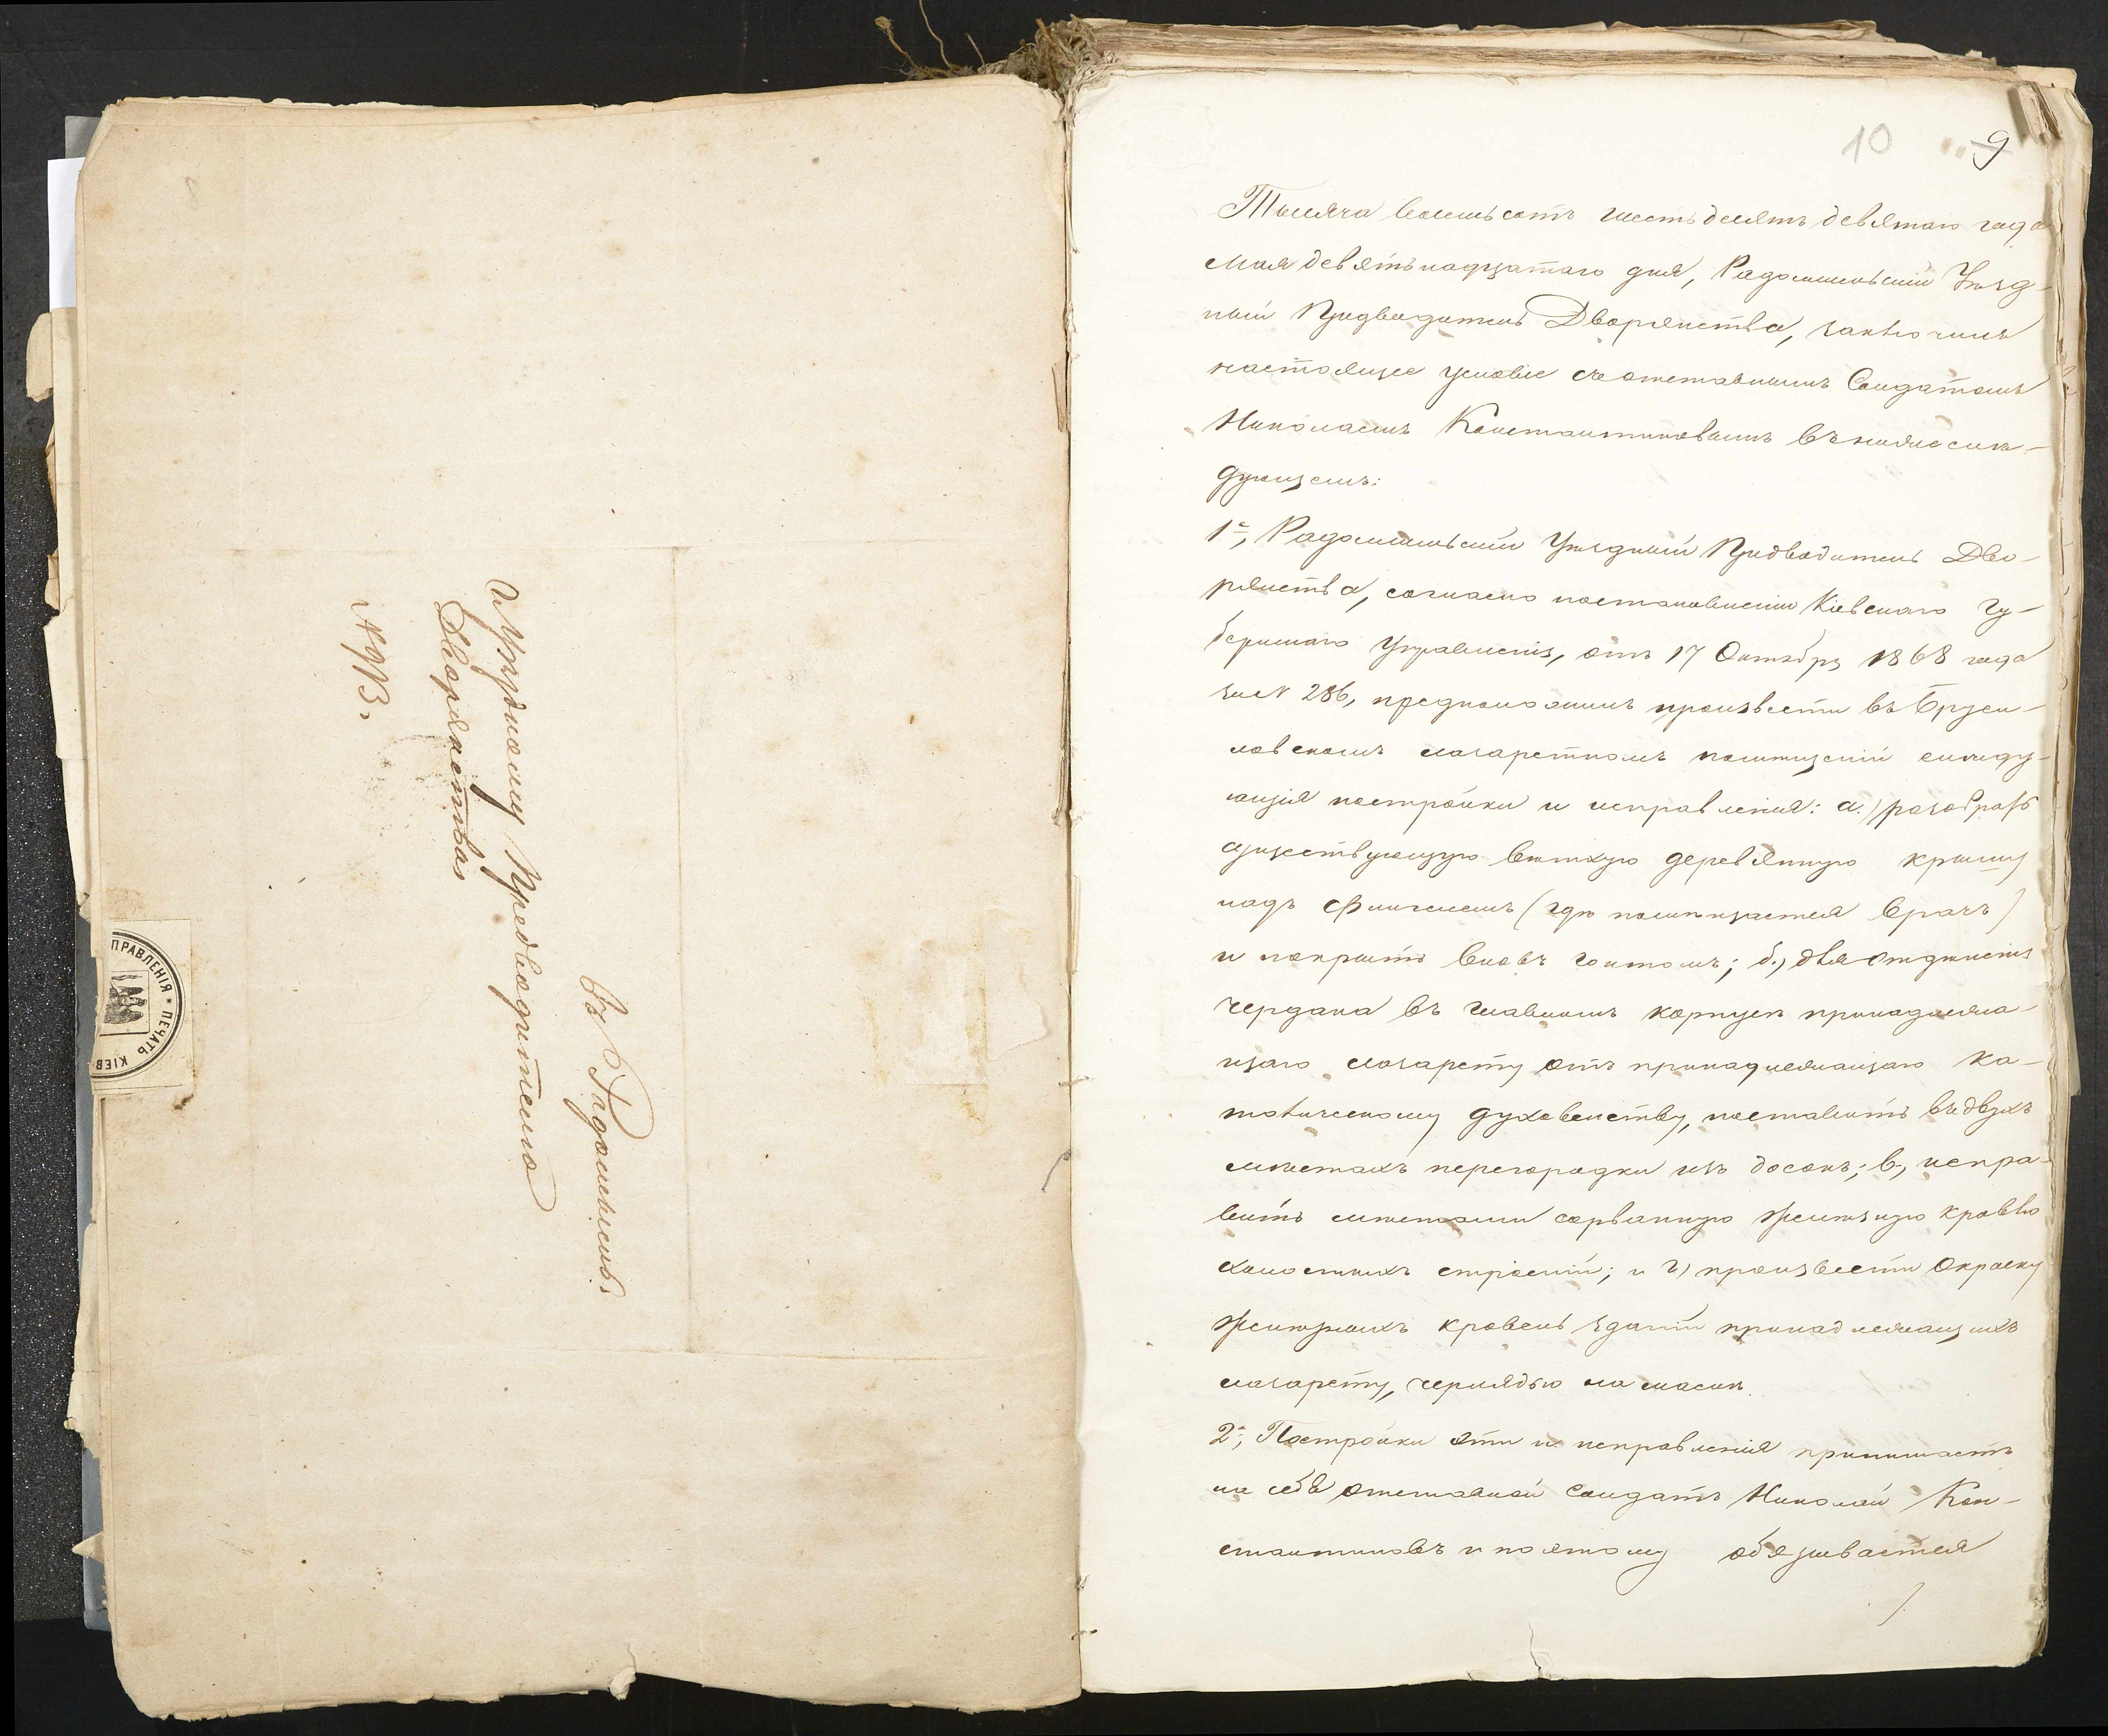 Уѣздному Предводителю
Дворянства
№ 913.
Въ Радомыслѣ.
ПРАВЛЕНІЯ * ПЕЧАТЬ КІЕВ
10 9
Тысяча восемьсотъ шестьдесятъ девятаго года
мая девятьнадцатаго дня, Радомысльскій Уѣзд-
ный Предводитель Дворянства, заключилъ
настоящее условіе съ отставнымъ Солдатомъ
Николаемъ Константиновымъ въ нижеслѣ-
дующемъ:
1е, Радомысльскій Уѣздный Предводитель Дво-
рянства, согласно постановленію Кіевскаго Гу-
бернскаго Управленія, отъ 17 Октября 1868 года
за № 286, предположилъ произвести въ Бруси-
ловскомъ лазаретномъ помѣщеніи слѣду-
ющія постройки и исправленія: а.) разобрать
существующую ветхую деревянную крышу
надъ флигелемъ (гдѣ помѣщается врачъ)
и покрыть вновь гонтомъ; б.) для отдѣленія
чердака въ главномъ корпусѣ принадлежа-
щаго лазарету отъ принадлежащаго ка-
толическому духовенству, поставить въ двухъ
мѣстахъ перегородки изъ досокъ; в., испра-
вить мѣстами сорванную желѣзную кровлю
холостыхъ строеній; и г) произвести окраску
желѣзныхъ кровель зданій принадлежащихъ
лазарету, чернядью на маслѣ.
2е, Постройки эти и исправленія принимаетъ
на себя отставной Солдатъ Николай Кон-
стантиновъ и поэтому обязывается